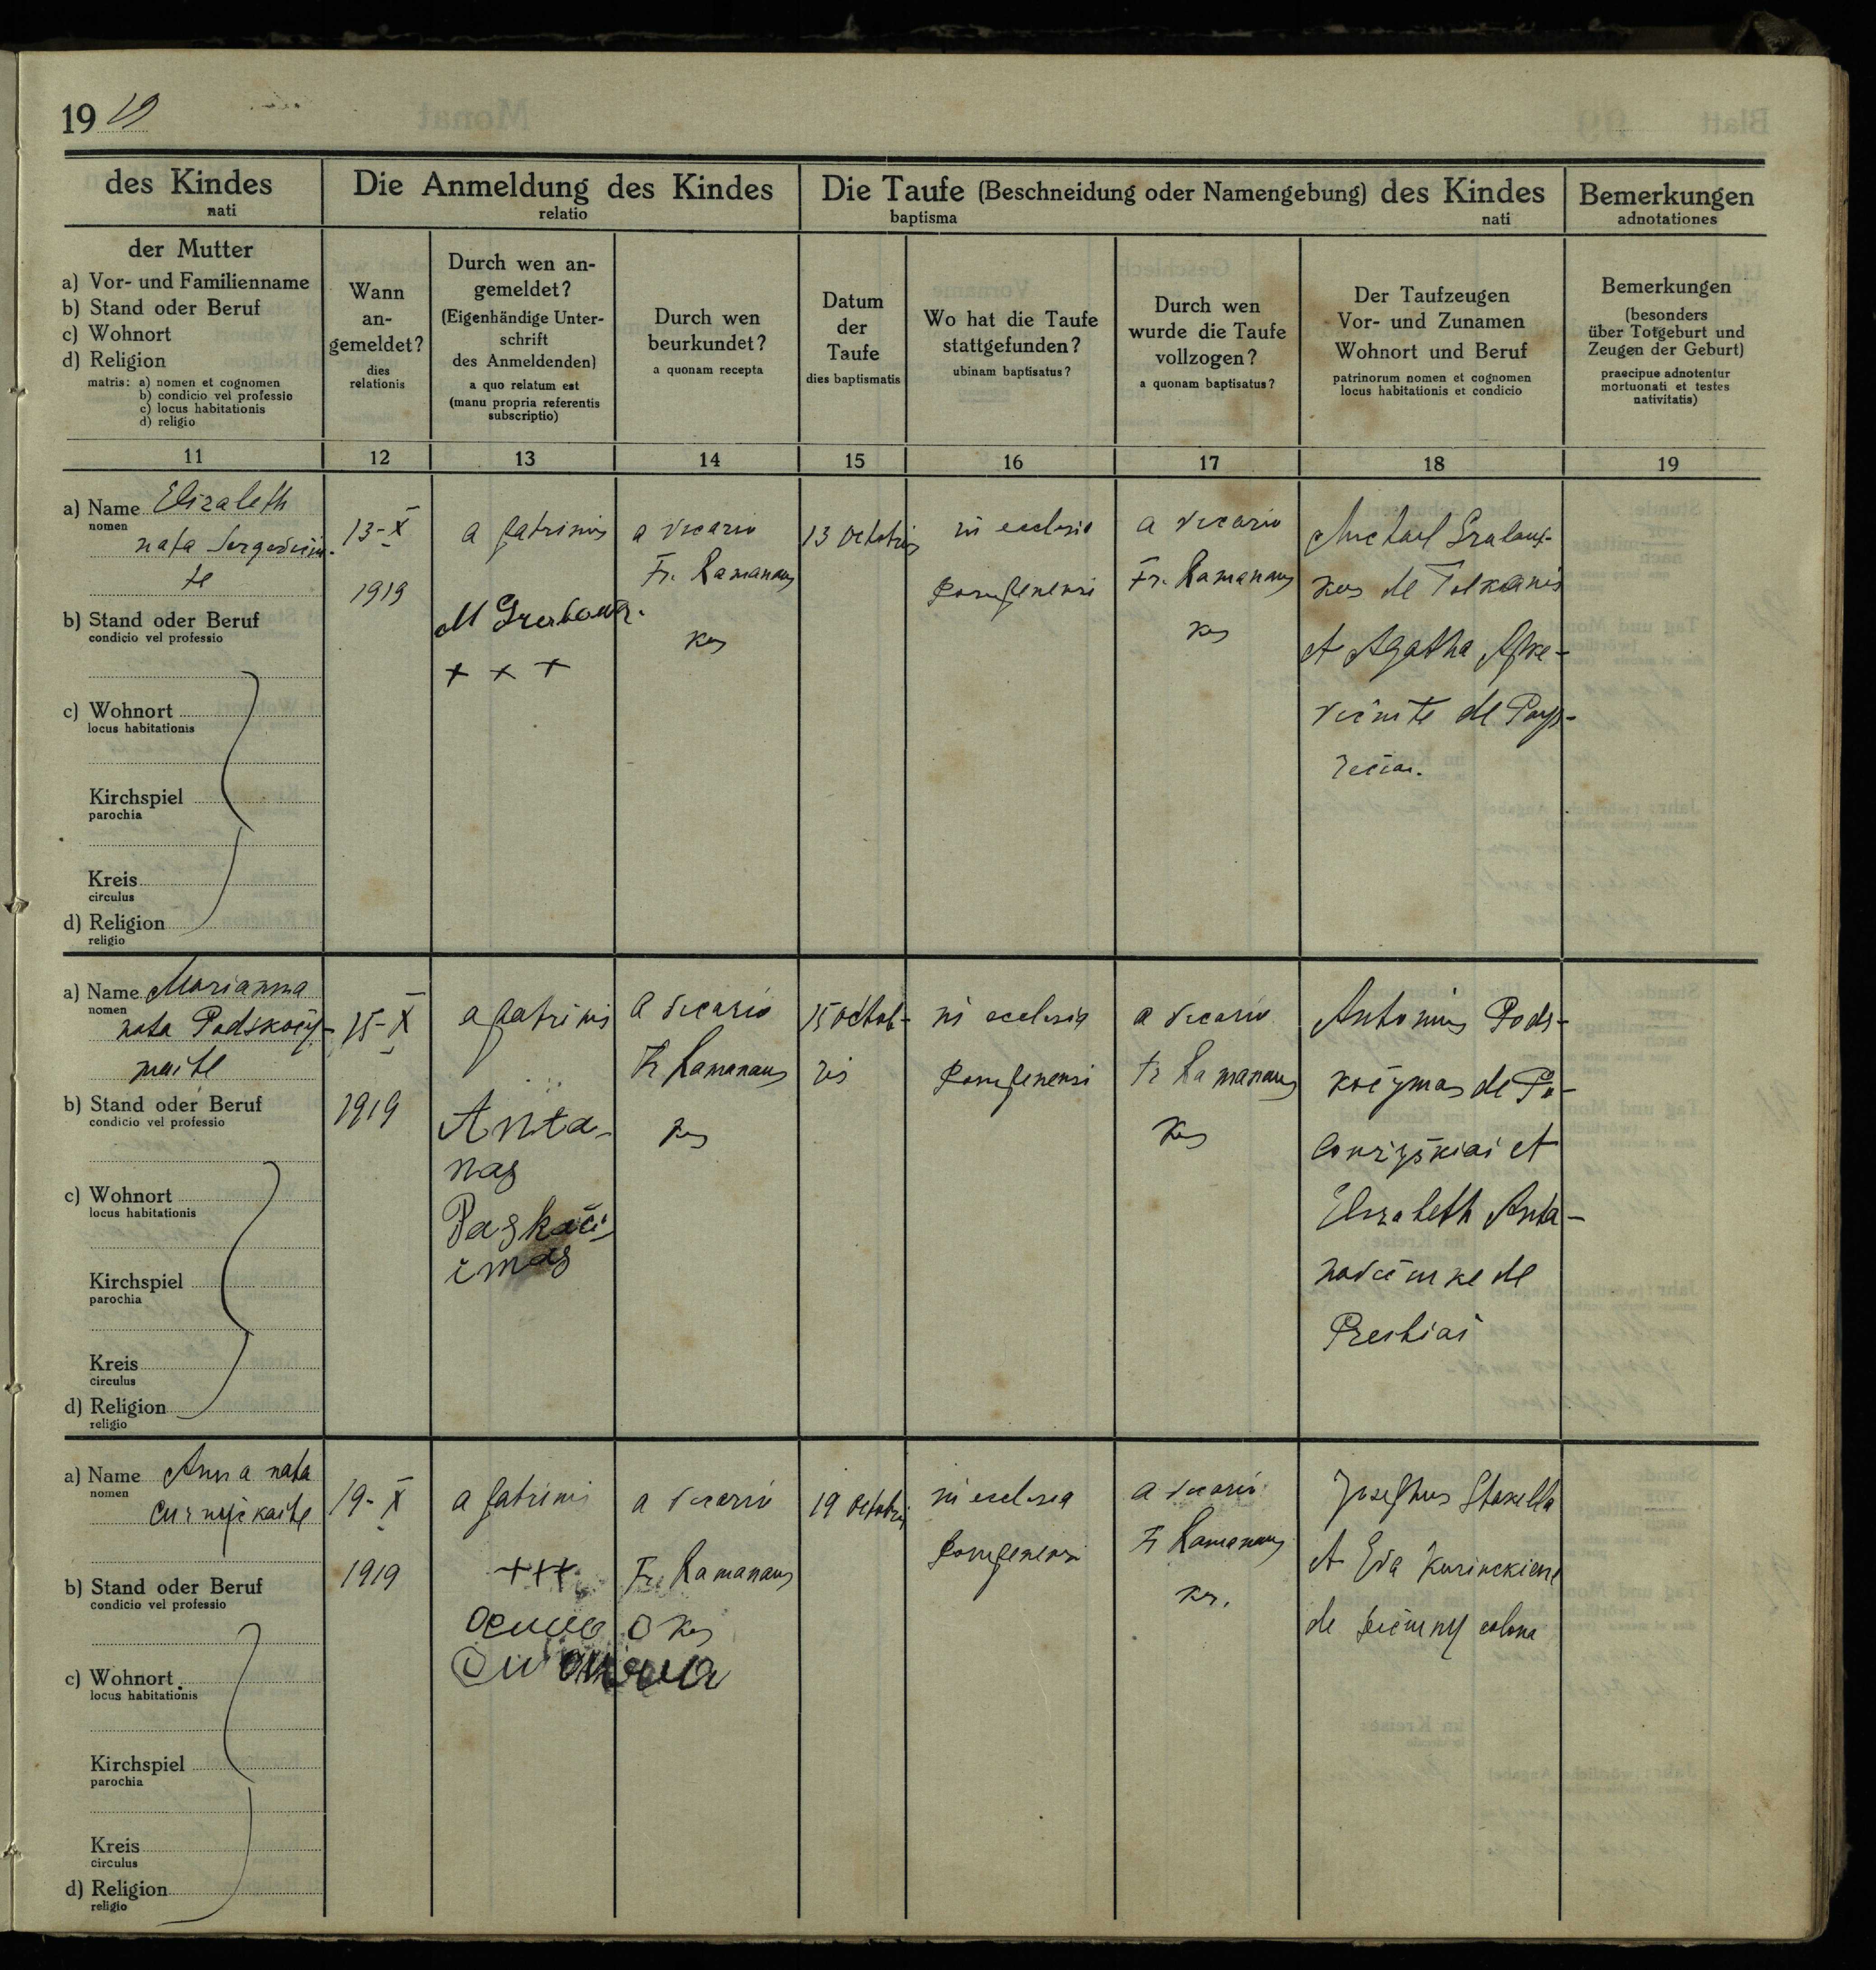 19 19
des Kindes
nati
Die Anmeldung des Kindes
relatio
Die Taufe (Beschneidung oder Namengebung) des Kindes
baptisma nati
Bemerkungen
adnotationes
der Mutter
a) Vor- und Familienname
b) Stand oder Beruf
c) Wohnort
d) Religion
matris: a) nomen et cognomen
b) condicio vel professio
c) locus habitationis
d) religio
Wann
an-
gemeldet?
dies
relationis
Durch wen an-
gemeldet?
(Eigenhändige Unter-
schrift
des Anmeldenden)
a quo relatum est
(manu propria referentis
subscriptio)
Durch wen
beurkundet?
a quonam recepta
Datum
der
Taufe
dies baptismatis
Wo hat die Taufe
stattgefunden?
ubinam baptisatus?
Durch wen
wurde die Taufe
vollzogen?
a quonam baptisatus?
Der Taufzeugen
Vor- und Zunamen
Wohnort und Beruf
patrinorum nomen et cognomen
locus habitationis et condicio
Bemerkungen
(besonders
über Totgeburt und
Zeugen der Geburt)
praecipue adnotentur
mortuonati et testes
nativitatis)
11 12 13 14 15 16 17 18 19
a) Name Elizabeth
nomen
nata
te
b) Stand oder Beruf
condicio vel professio
c) Wohnort
locus habitationis
Kirchspiel
parochia
Kreis
circulus
d) Religion
religio
13-X
1919
a patrinis
M
+ + +
a vicario
Fr. Ramanaus
kas
13 octobris
in ecclesia
a vicario
Fr. Ramanaus
kas
Michael
kas de
et Agatha
de
a) Name Marianna
nomen
nata Podskočy-
maite
b) Stand oder Beruf
condicio vel professio
c) Wohnort
locus habitationis
Kirchspiel
parochia
Kreis
circulus
d) Religion
religio
15-X
1919
a patrinis
Anta-
nas
Paskači
imas
a vicario
Fr Ramanaus
kas
15 octob-
ris
in ecclesia
a vicario
Fr Ramanaus
kas
Antonius Pods-
kočymas de
et
Elizabeth Anta-
de
a) Name Anna nata
nomen
b) Stand oder Beruf
condicio vel professio
c) Wohnort
locus habitationis
Kirchspiel
parochia
Kreis
circulus
d) Religion
religio
19-X
1919
a patrinis
+++
a vicario
Fr. Ramanaus
kas
19 octobris
in ecclesia
a vicario
Fr Ramanaus
kas.
Josephus
et Eva Kurinckiene
de